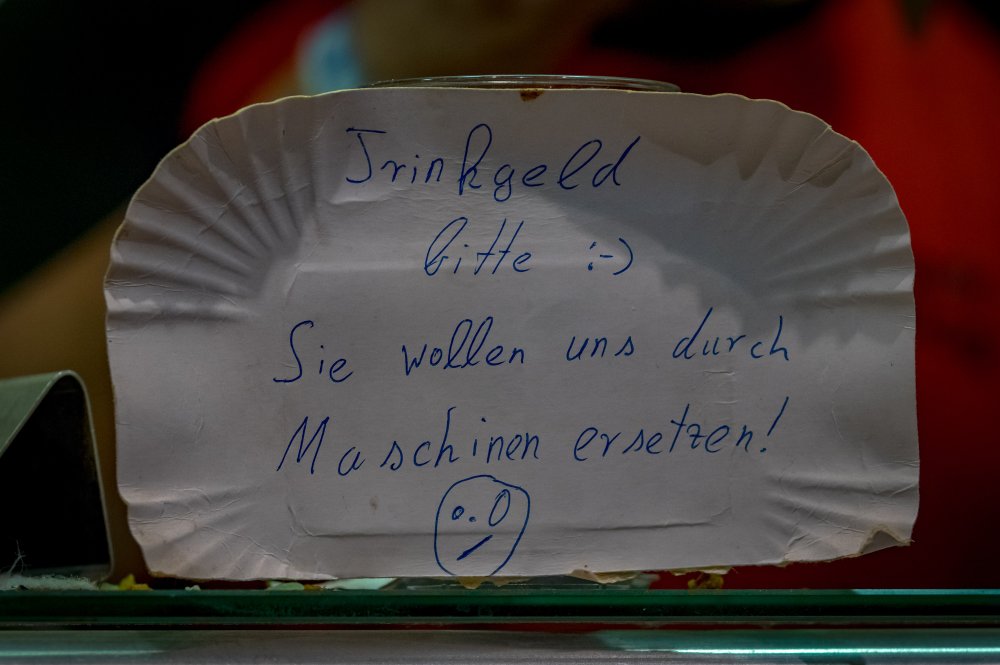 Trinkgeld
bitte :-)
Sie wollen uns durch
Maschinen ersetzen!